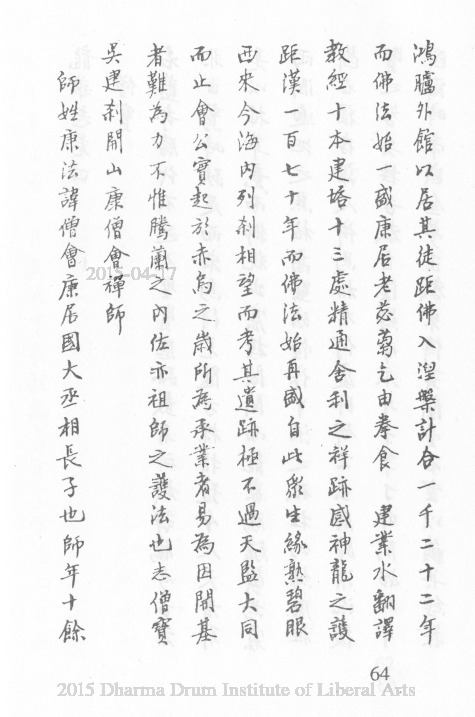 鴻臚外館以居其徒距佛入涅槃計合一千二十二年
而佛法始一盛康居老苾蒭乞由拳食　建業水翻譯
教經十本建塔十三處精通舍利之祥跡感神龍之護
距漢一百七十年而佛法始再盛自此眾生緣熟碧眼
西來今海內列剎相望而考其遺跡極不過天監大同
而止會公實起於赤烏之歲所為承業者易為因開基
者難為力不惟騰蘭之內佐亦祖師之護法也志僧寶
吳建剎開山康僧會禪師
師姓康法諱僧會康居國大丞相長子也師年十餘
2015-04-17
64
2015 Dharma Drum Institute of Liberal Arts